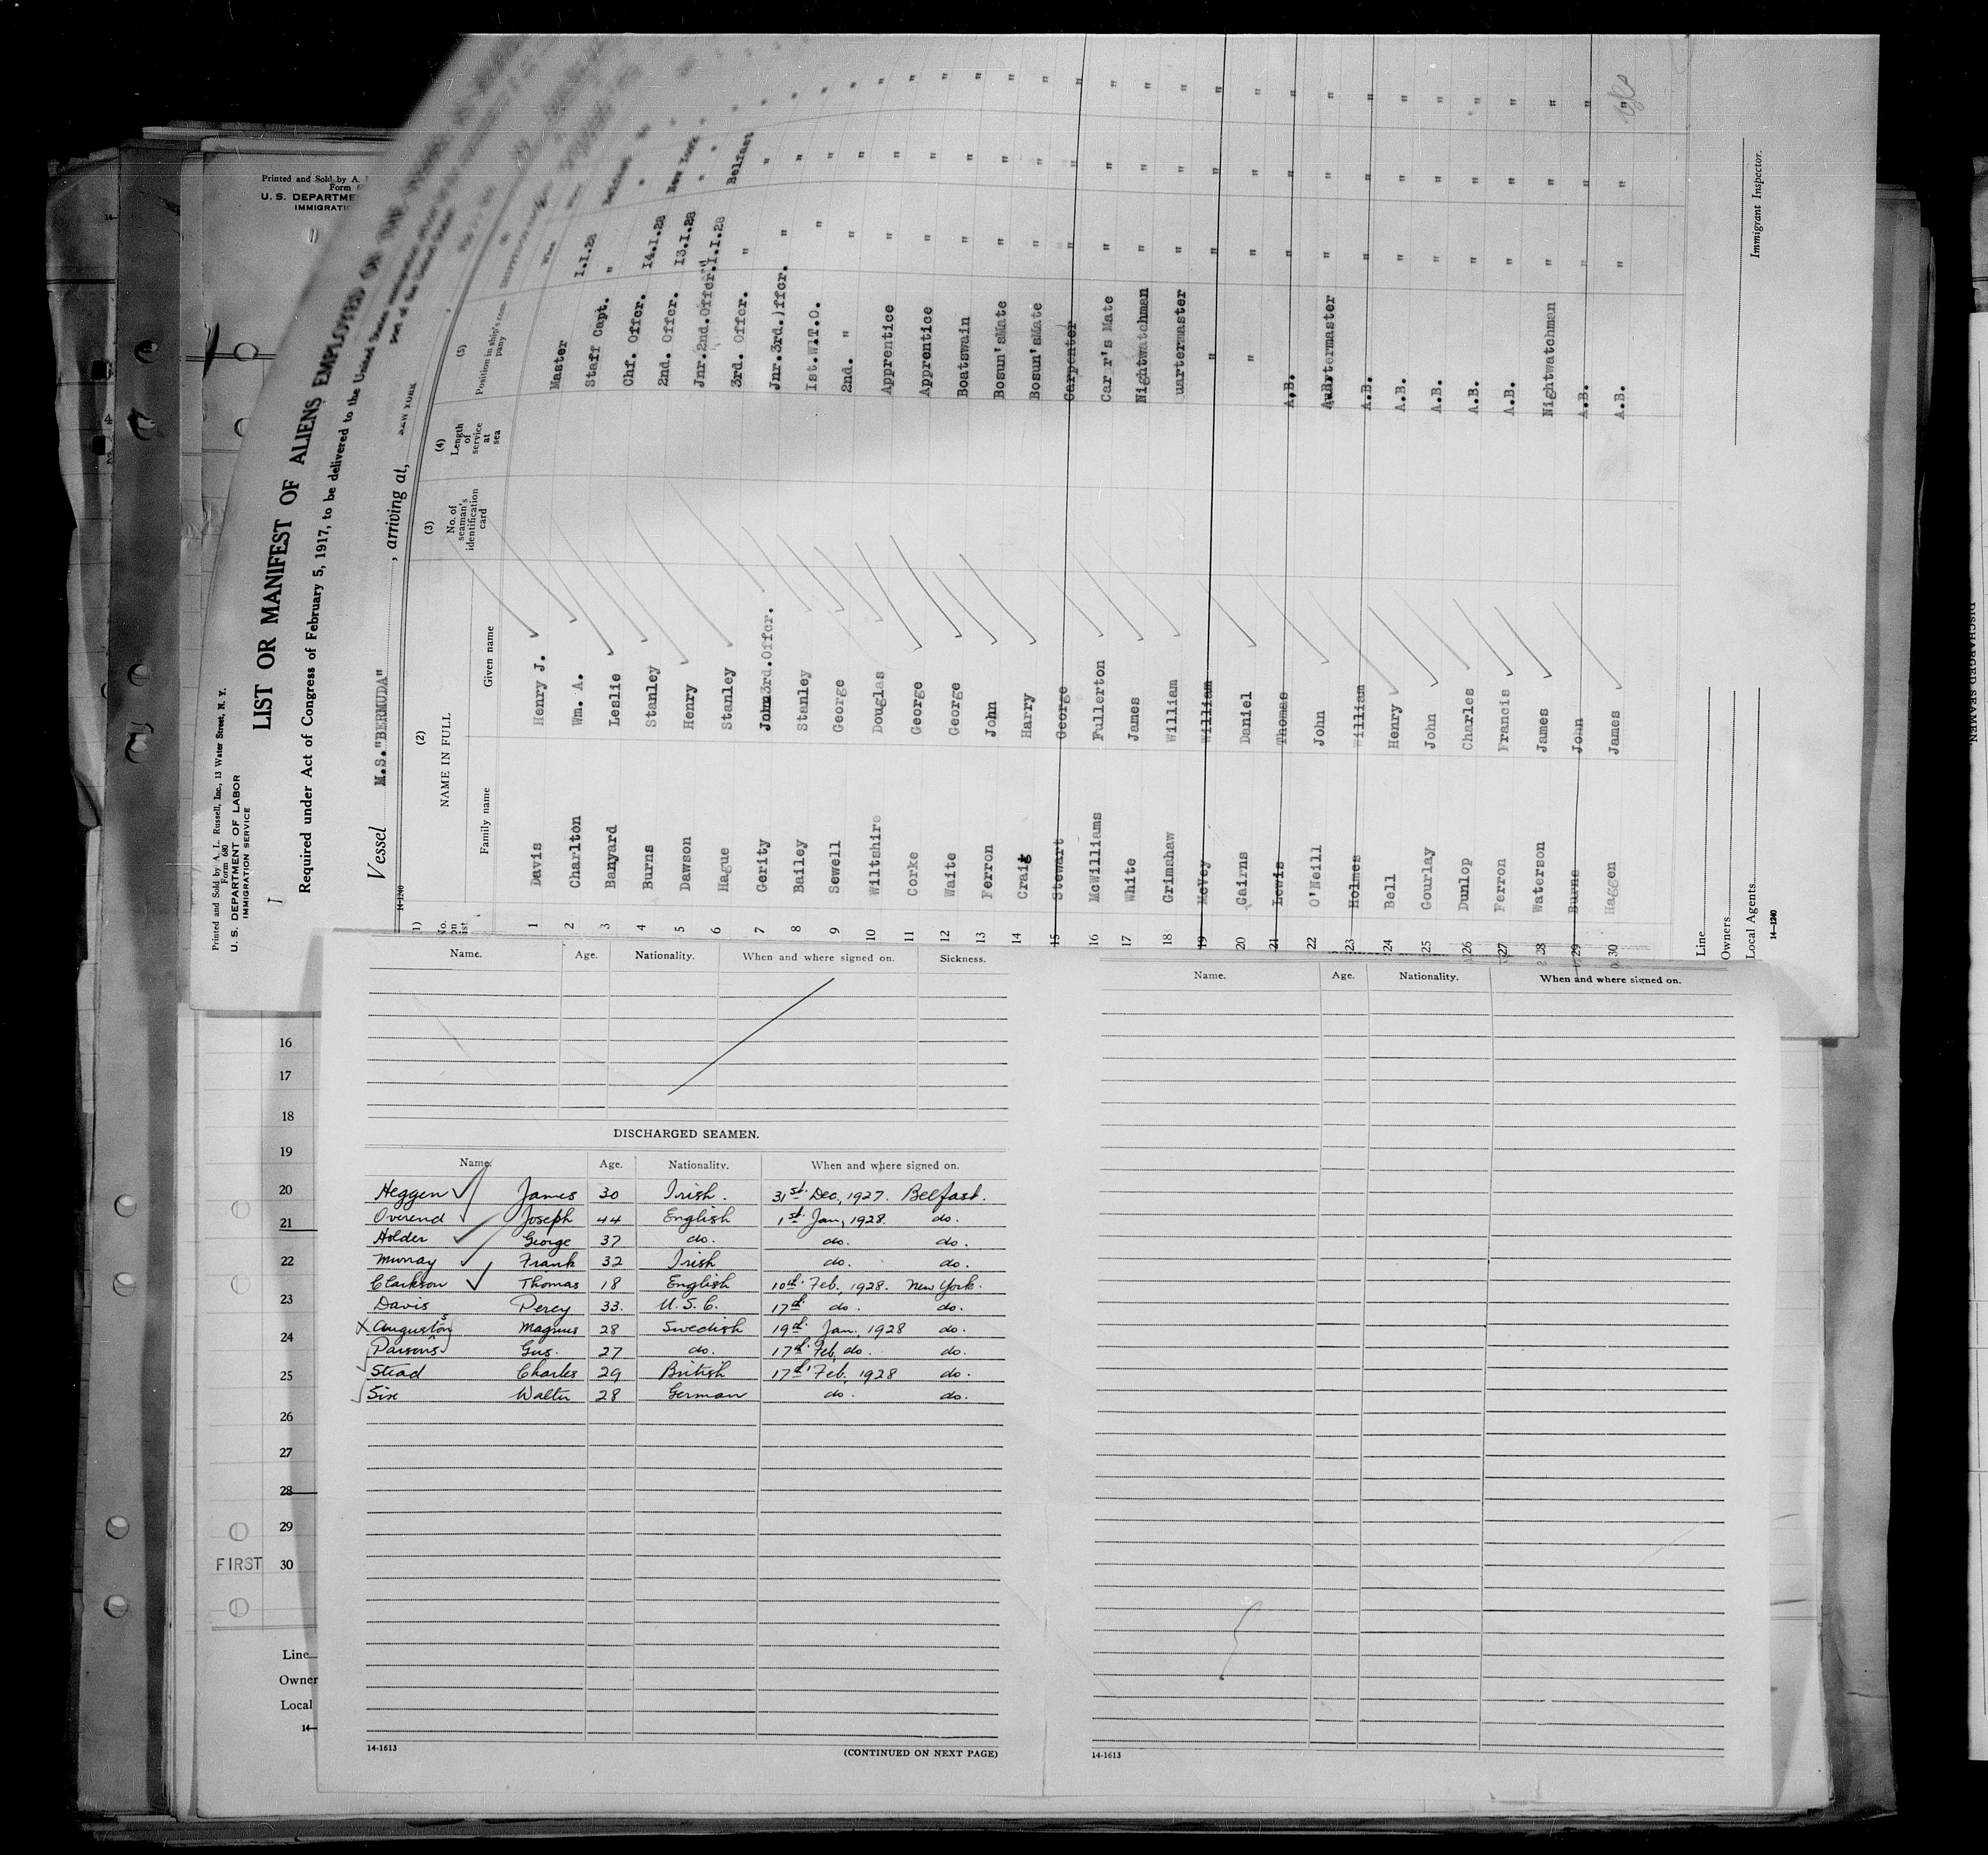 Printed and Sold by A. L. Russell, Inc., 13 Water Street, N. Y.
Form 680
U. S. DEPARTMENT OF LABOR
IMMIGRATION SERVICE
LIST OR MANIFEST OF ALIENS EMPLOYED ON THE
Required under Act of Congress of February 5, 1917, to be delivered to the United States
port of the United States
Vessel M.S."BERMUDA", arriving at, NEW YORK
14-1240
(2) (3) (4) (5)
NAME IN FULL No. of seaman's identification card Length of service at sea Position in ship's company
Family name Given name
1 Davis Henry J. Master 1.1.28
2 Charlton Wm. A. Staff Capt. "
3 Banyard Leslie Chf. Offcr. 14.1.28 New York
4 Burns Stanley 2nd. Offcr. 13.1.28 "
5 Dawson Henry Jnr.2nd.Offcr. 1.1.28 Belfast
6 Hague Stanley 3rd. Offcr. " "
7 Gerity John Jnr.3rd.)ffcr. " "
8 Bailey Stanley 1st.W/T.O. " "
9 Sewell George 2nd. " " "
10 Wiltshire Douglas Apprentice " "
11 Corke George Apprentice " "
12 Waite George Boatswain " "
13 Ferron John Bosun'sMate " "
14 Craig Harry Bosun'sMate " "
15 Stewart George Carpenter " "
16 McWilliams Fullerton Car r's Mate " "
17 White James Nightwatchman " "
18 Grimshaw William uartermaster " "
19 McVey William " " "
20 Cairns Daniel " " "
21 Lewis Thomas A.B. " "
22 O'Neill John Quartermaster " "
23 Holmes William A.B. " "
24 Bell Henry A.B. " "
25 Gourlay John A.B. " "
26 Dunlop Charles A.B. " "
27 Ferron Francis A.B. " "
28 Waterson James Nightwatchman " "
29 Burns John A.B. " "
30 Haggen James A.B. " "
Line
Owners
Local Agents
14-1240
Immigrant Inspector.
Printed and Sold by A.
U. S. DEPARTME
IMMIGRATIO
Name. Age. Nationality. When and where signed on. Sickness.
DISCHARGED SEAMEN.
Name. Age. Nationality. When and where signed on.
Heggen James 30 Irish. 31st Dec, 1927. Belfast.
Overend Joseph 44 English 1st Jan, 1928. do.
Holder George 37 do. do. do.
Murray Frank 32 Irish do. do.
Clarkson Thomas 18 English 10th Feb, 1928. New York.
Davis Percy 33. U.S.C. 17th do. do.
X Auguston Magnus 28 Swedish 19th Jan, 1928 do.
Parsons Gus. 27 do. 17th Feb, do. do.
Stead Charles 29 British 17th Feb, 1928 do.
Six Walter 28 German do. do.
14-1613
(CONTINUED ON NEXT PAGE)
Name. Age. Nationality. When and where signed on.
14-1613
16
17
18
19
20
21
22
23
24
25
26
27
28
29
FIRST 30
Line
Owner
Local
14-
DISCHARGED SEAMEN.